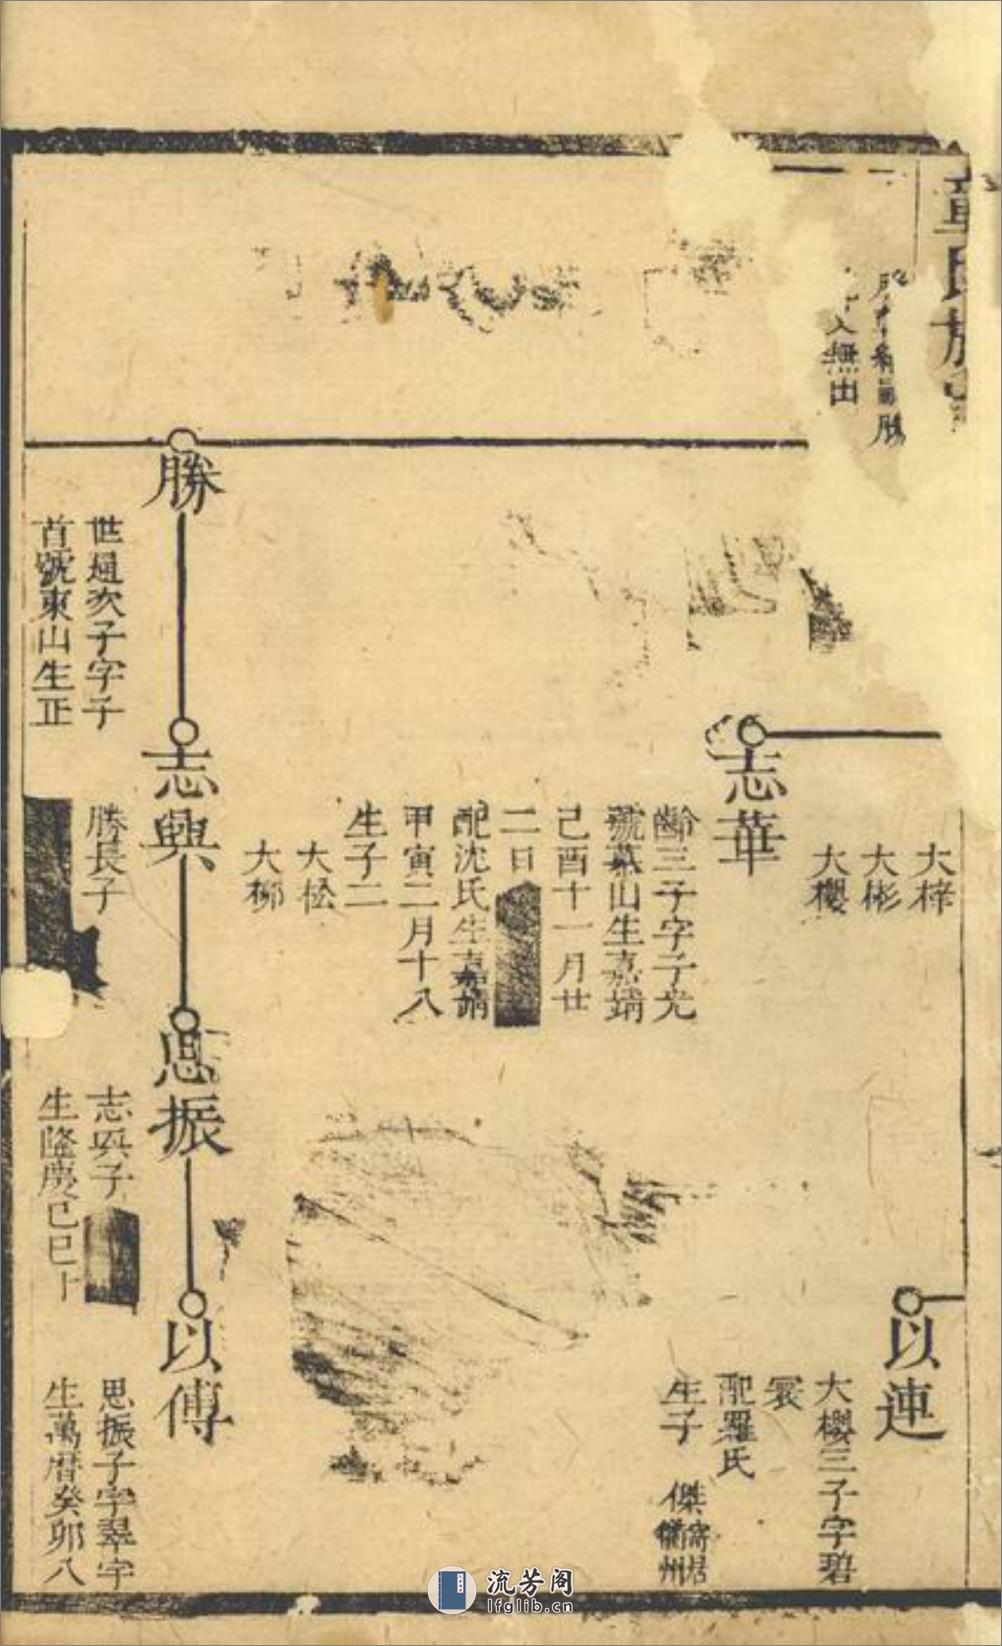 氏
無出
勝
世通次子字子
首號東山生正
大梓
大彬
大櫻
志華
齡三子字子光
號慕山生嘉靖
己酉十一月廿
二日
配沈氏生嘉靖
甲寅二月十八
生子二
大松
大柳
志興
勝長子
思振
志興子
生隆慶己巳上
以連
大櫻三子字碧
寰
配羅氏
生子 傑
寄居
衢州
以傅
思振子字翠宇
生萬曆癸卯八
流芳阁
lfglib.cn